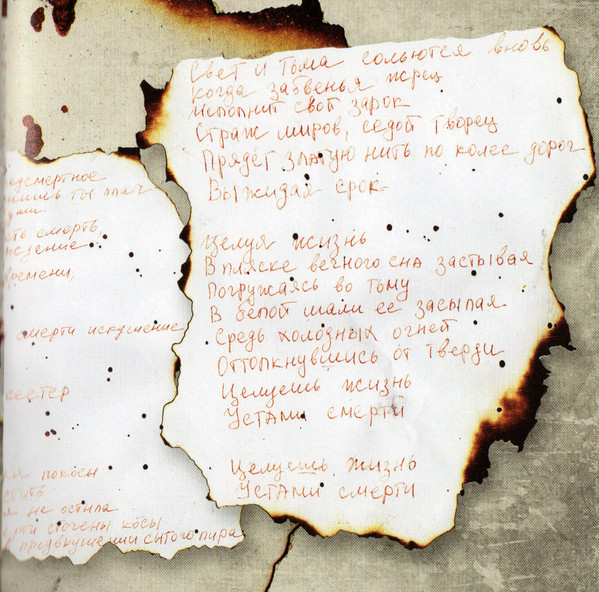 Свет и тьма сольются вновь
Когда забвенья жрец
Исполнит свой зарок
Страж миров, седой творец
Прядёт златую нить по колее дорог
Выжидая срок
Целуя жизнь
В пляске вечного сна застывая
Погружаясь во тьму
В белой шали ее засыпая
Средь холодных огней
Оттолкнувшись от тверди
Целуешь жизнь
Устами смерти
Целуешь жизнь
Устами смерти
смерть,
времени,
смерти искушение
сестер
покосы
не остыла
косы
в предвкушении сытого пира